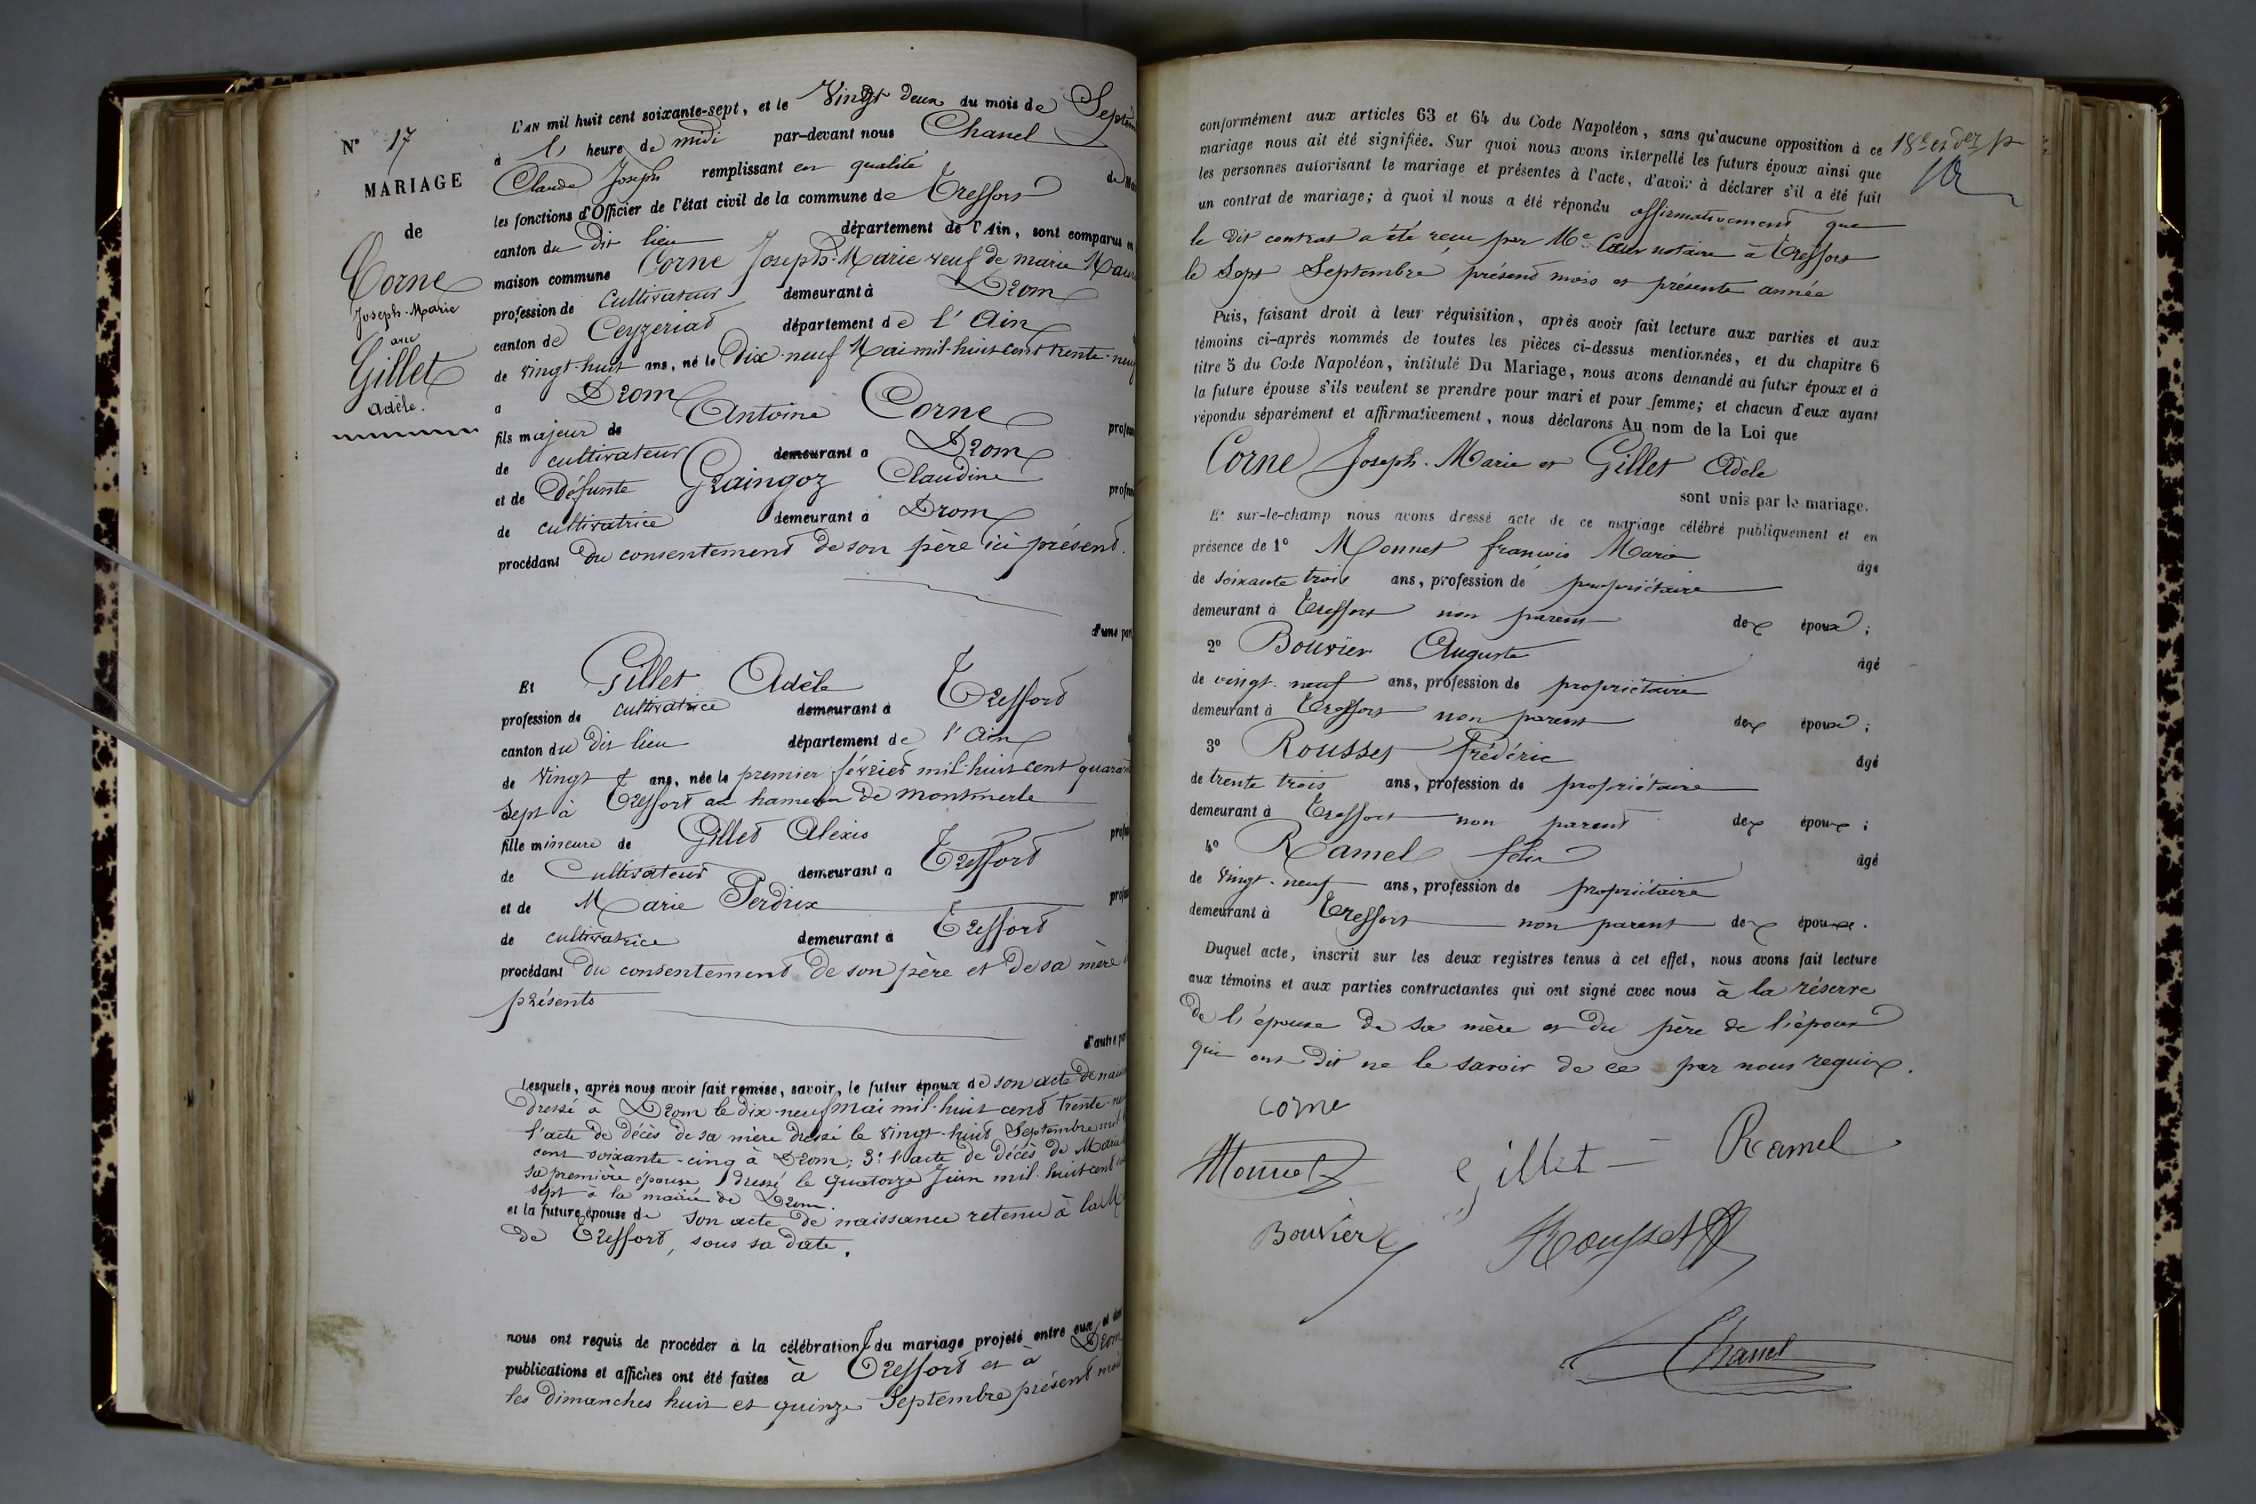 N° 17
MARIAGE
de
Corne
Joseph-Marie
avec
Gillet
Adèle.
L'AN mil huit cent soixante-sept, et le Vingt deux du mois de Septem
à l' heure de midi par-devant nous Chanel
Claude Joseph remplissant en qualité de
les fonctions d'Officier de l'état civil de la commune de Treffort
canton du dit lieu département de l'Ain, sont comparus en
maison commune Corne Joseph-Marie veuf de marie
profession de Cultivateur demeurant à Drom
canton de Ceyzeriat département de l'Ain
de vingt-huit ans, né le Dix-neuf Mai mil-huit cent trente-neuf
a Drom
fils majeur de Antoine Corne profes
de cultivateur demeurant a Drom
et de Défunte Graingoz Claudine profess
de cultivatrice demeurant à Drom
procédant du consentement de son père ici présent.
d'une part
Et Gillet Adèle
profession de cultivatrice demeurant à Treffort
canton du dit lieu département de l'Ain
de vingt ans, née le premier février mil-huit cent quaran
sept à Treffort au hameau de montmerle
fille mineure de Gillet Alexis profes
de Cultivateur demeurant a Treffort
et de Marie Perdrix profes
de cultivatrice demeurant à Treffort
procédant du consentement de son père et de sa mère
présents
d'autre par
Lesquels, après nous avoir fait remise, savoir, le futur époux de son acte de nais
dressé à Drom le dix-neuf mai mil-huit cent trente-ne
l'acte de décès de sa mère dressé le vingt-huit Septembre mil
cent soixante-cinq à Drom; 3° l'acte de décès de Marie
sa première épouse, dressé le quatorze Juin mil-huit cent
sept à la mairie de Drom.
et la future épouse de son acte de naissance retenu à la M
de Treffort, sous sa date.
nous ont requis de procéder à la célébration du mariage projeté entre eux, et dont
publications et affiches ont été faites à Treffort et à Drom
les dimanches huit et quinze Septembre présent mois
conformément aux articles 63 et 64 du Code Napoléon, sans qu'aucune opposition à ce
mariage nous ait été signifiée. Sur quoi nous avons interpellé les futurs époux ainsi que
les personnes autorisant le mariage et présentes à l'acte, d'avoir à déclarer s'il a été fait
un contrat de mariage; à quoi il nous a été répondu affirmativement que
le dit contrat a été reçu par Me notaire à Treffort
le Sept Septembre présent mois et présente année
Puis, faisant droit à leur réquisition, après avoir fait lecture aux parties et aux
témoins ci-après nommés de toutes les pièces ci-dessus mentionnées, et du chapitre 6
titre 5 du Code Napoléon, intitulé Du Mariage, nous avons demandé au futur époux et à
la future épouse s'ils veulent se prendre pour mari et pour femme; et chacun d'eux ayant
répondu séparément et affirmativement, nous déclarons Au nom de la Loi que
Corne Joseph-Marie et Gillet Adèle
sont unis par le mariage.
Et sur-le-champ nous avons dressé acte de ce mariage célébré publiquement et en
présence de 1° Monnet françois Marie âgé
de soixante trois ans, profession de propriétaire
demeurant à Treffort non parent des époux;
2° Bouvier Auguste âgé
de vingt-neuf ans, profession de propriétaire
demeurant à Treffort non parent des époux;
3° Rousset frédéric âgé
de trente trois ans, profession de propriétaire
demeurant à Treffort non parent des époux;
4° Ramel félix âgé
de Vingt-neuf ans, profession de propriétaire
demeurant à Treffort non parent des époux.
Duquel acte, inscrit sur les deux registres tenus à cet effet, nous avons fait lecture
aux témoins et aux parties contractantes qui ont signé avec nous à la réserve
de l'épouse de sa mère et du père de l'époux
qui ont dit ne le savoir de ce par nous requis.
Corne
Monnet Gillet Ramel
Bouvier Rousset
Chanel